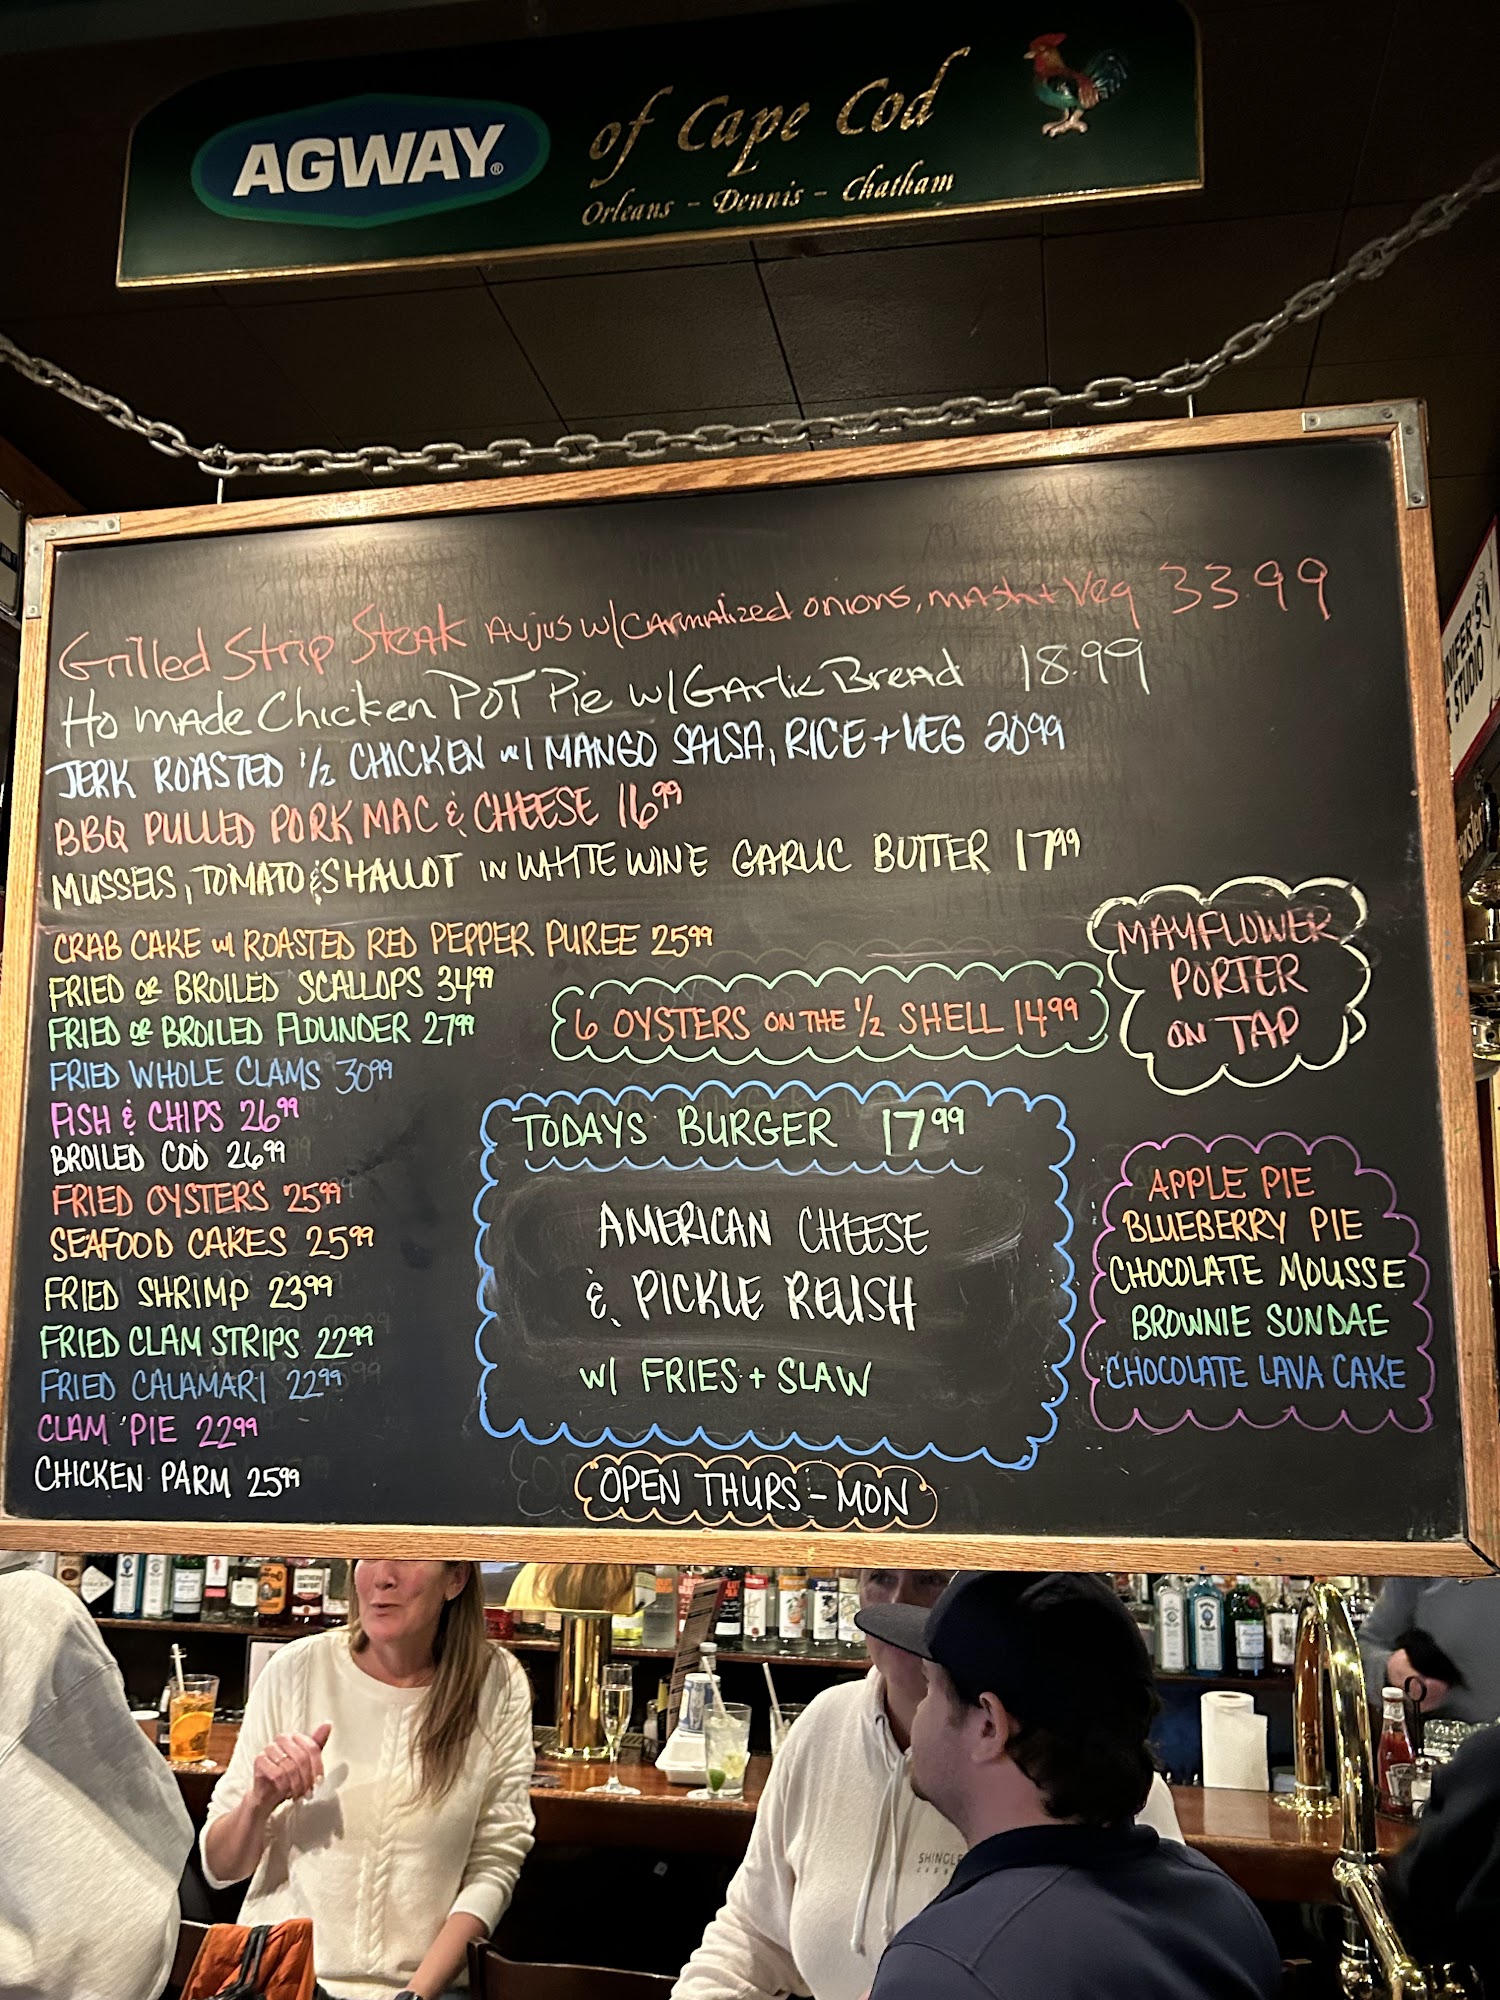 AGWAY®
of Cape Cod
Orleans - Dennis - Chatham
Grilled Strip Steak Aujus w/Carmalized onions, mash + Veg 33.99
Ho made Chicken Pot Pie w/Garlic Bread 18.99
JERK ROASTED 1/2 CHICKEN w/ MANGO SALSA, RICE + VEG 20.99
BBQ PULLED PORK MAC & CHEESE 16.99
MUSSELS, TOMATO & SHALLOT IN WHITE WINE GARLIC BUTTER 17.99
CRAB CAKE w/ ROASTED RED PEPPER PUREE 25.99
FRIED OR BROILED SCALLOPS 34.99
FRIED OR BROILED FLOUNDER 27.99
FRIED WHOLE CLAMS 30.99
FISH & CHIPS 26.99
BROILED COD 26.99
FRIED OYSTERS 25.99
SEAFOOD CAKES 25.99
FRIED SHRIMP 23.99
FRIED CLAM STRIPS 22.99
FRIED CALAMARI 22.99
CLAM PIE 22.99
CHICKEN PARM 25.99
6 OYSTERS ON THE 1/2 SHELL 14.99
TODAYS BURGER 17.99
AMERICAN CHEESE
& PICKLE RELISH
w/ FRIES + SLAW
OPEN THURS - MON
MAYFLOWER
PORTER
ON TAP
APPLE PIE
BLUEBERRY PIE
CHOCOLATE MOUSSE
BROWNIE SUNDAE
CHOCOLATE LAVA CAKE
STUDIO